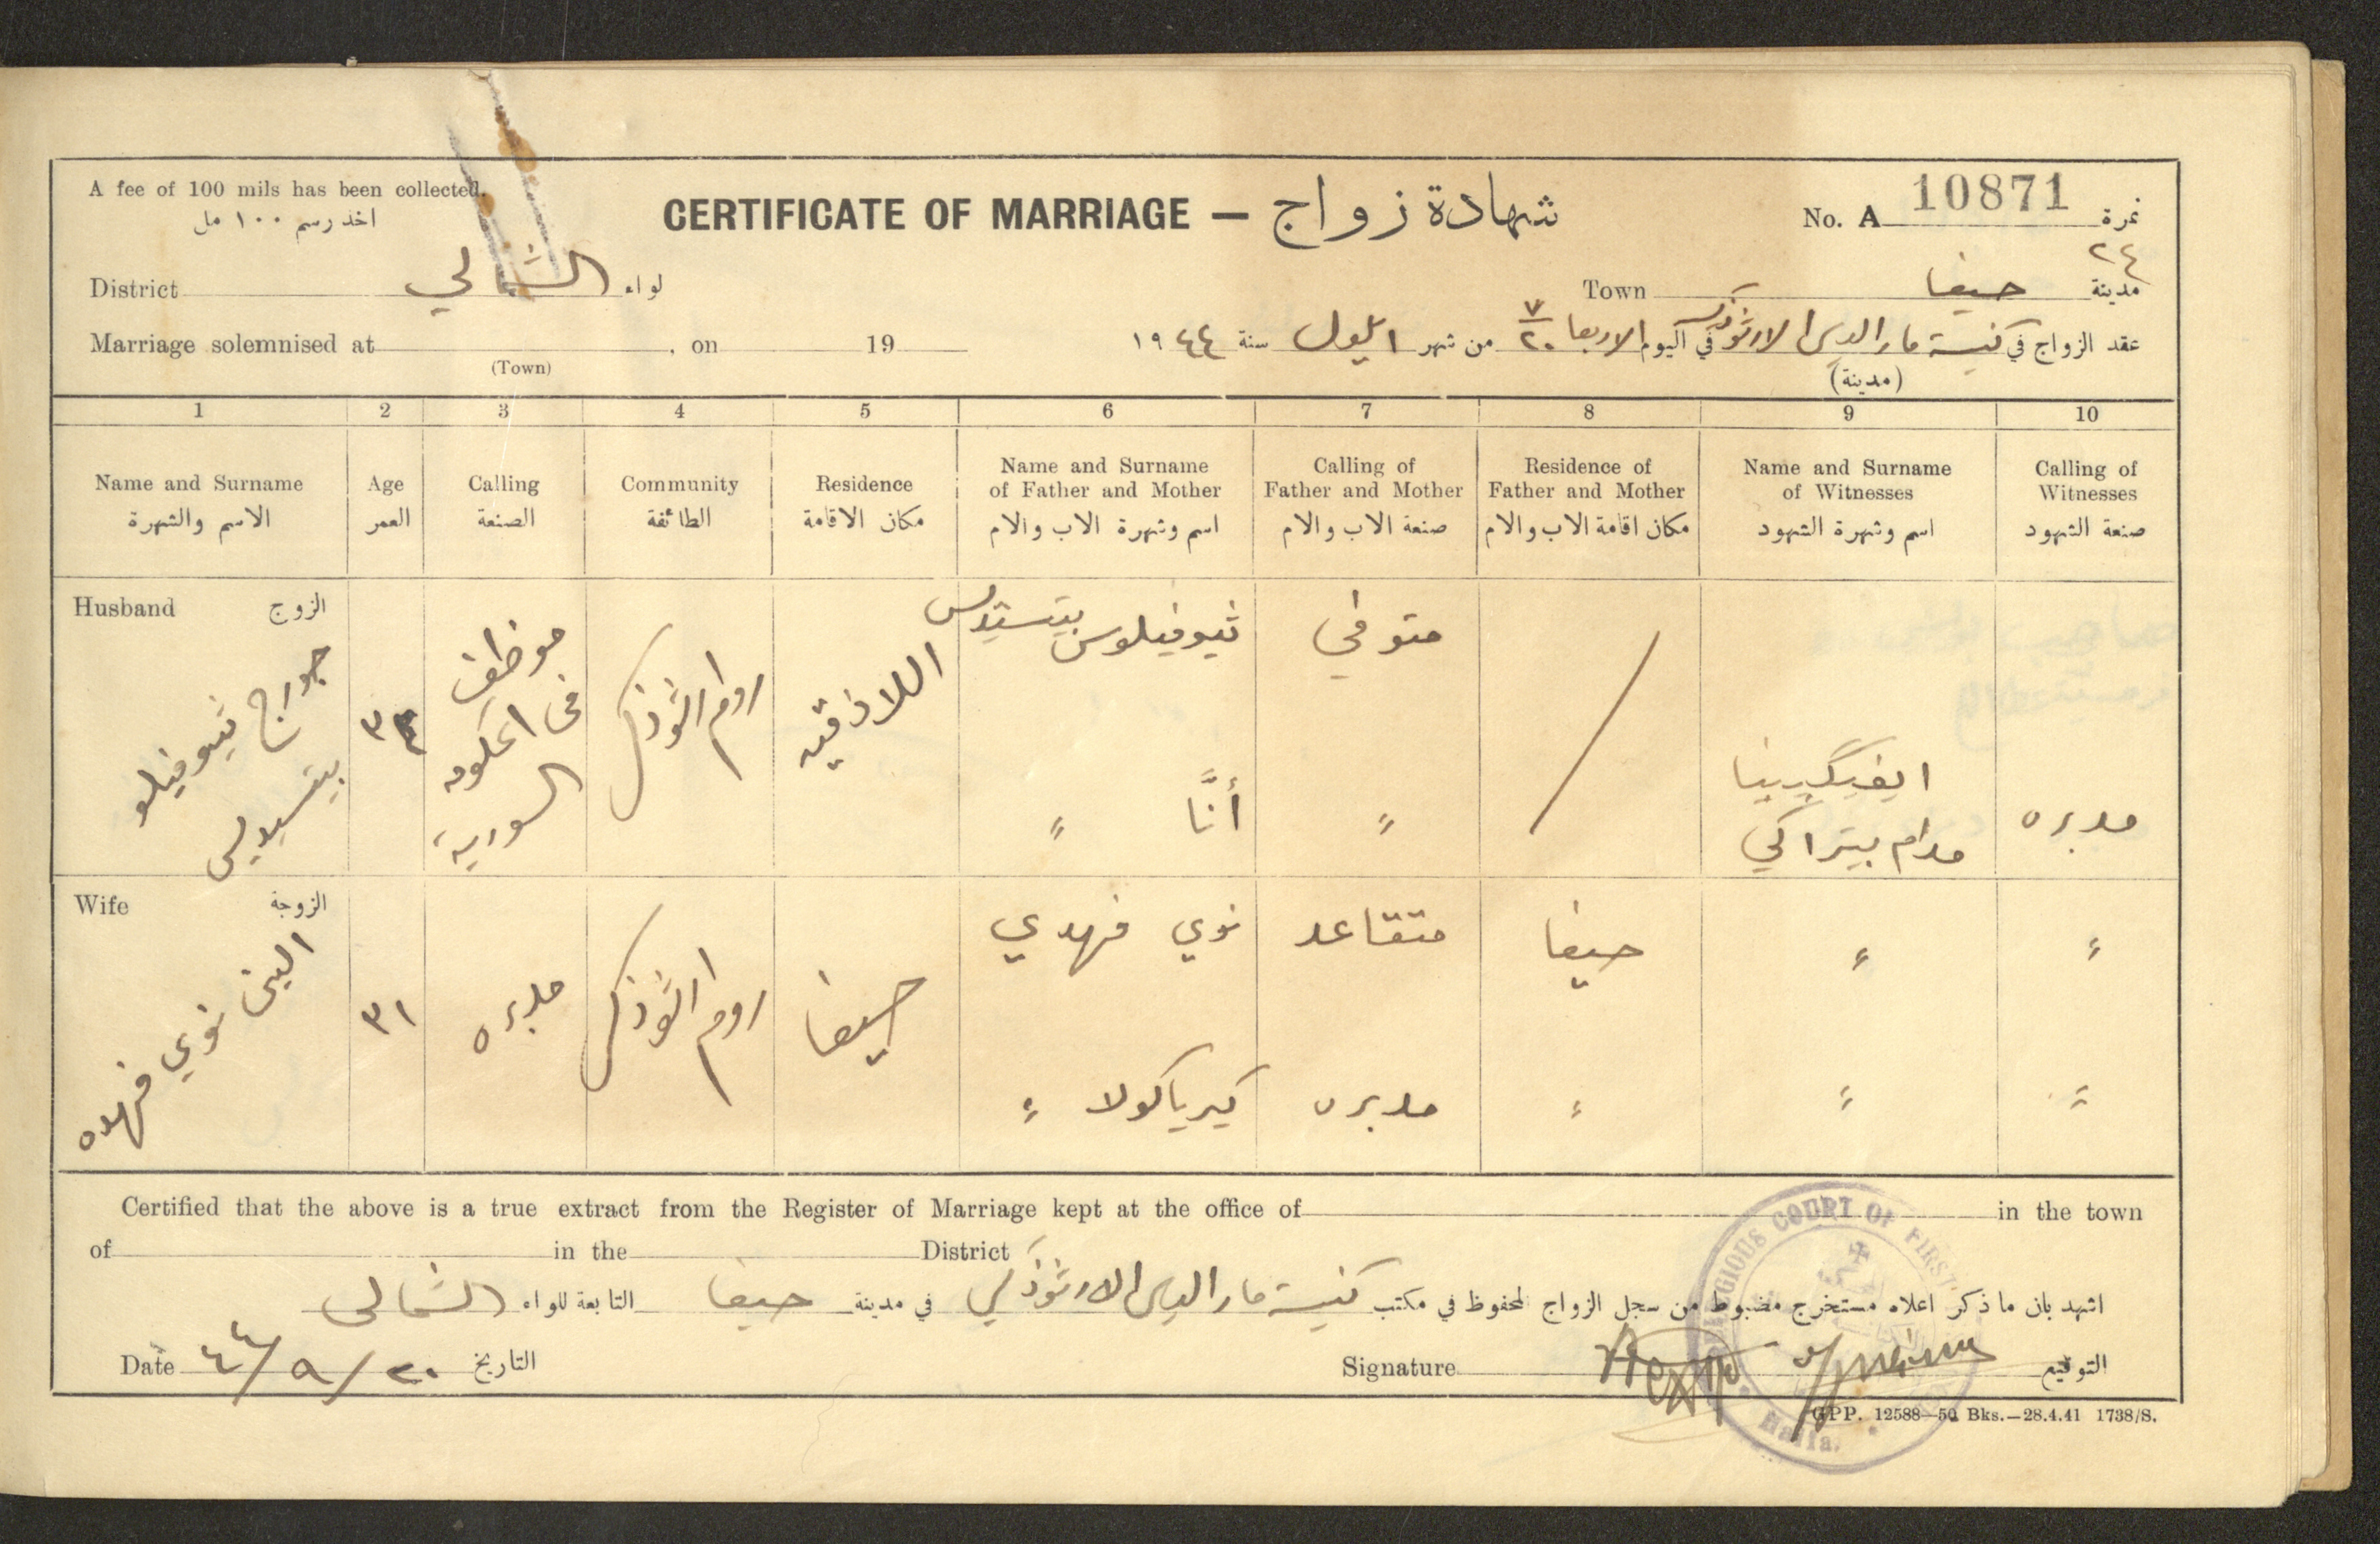 A fee of 100 mils has been collected.
اخذ رسم ١٠٠ مل
CERTIFICATE OF MARRIAGE — شهادة زواج
No. A 10871 نمرة
٢٤
District الشمالي لواء
Town حيفا مدينة
Marriage solemnised at , on 19
(Town)
عقد الزواج في كنيسة مار الياس الارثوذكس في اليوم الاربعا ٧/٢٠ من شهر ايلول سنة ١٩٤٤
(مدينة)
1 2 3 4 5 6 7 8 9 10
Name and Surname
الاسم والشهرة
Age
العمر
Calling
الصنعة
Community
الطائفة
Residence
مكان الاقامة
Name and Surname
of Father and Mother
اسم وشهرة الاب والام
Calling of
Father and Mother
صنعة الاب والام
Residence of
Father and Mother
مكان اقامة الاب والام
Name and Surname
of Witnesses
اسم وشهرة الشهود
Calling of
Witnesses
صنعة الشهود
Husband الزوج
جورج ثيوفيلو
موظف
في الحكومه
السورية
روم ارثوذكس
اللاذقيه
ثيوفيلوس
أنَّا "
متوفي
"
مدام بيتراكي
مدبره
Wife الزوجة
الين نوي فهده
٣١
مدبره
روم ارثوذكس
حيفا
نوي فهدي
كيرياكولا "
متقاعد
مدبره
حيفا
"
"
"
"
"
Certified that the above is a true extract from the Register of Marriage kept at the office of in the town
of in the District
اشهد بان ما ذكر اعلاه مستخرج مضبوط من سجل الزواج المحفوظ في مكتب كنيسة مار الياس الارثوذكسي في مدينة حيفا التابعة للواء الشمالي
Date ٢٠/٩/٤٤ التاريخ
Signature التوقيع
RELIGIOUS COURT OF FIRST
Haifa.
GPP. 12588—50 Bks.—28.4.41 1738/S.